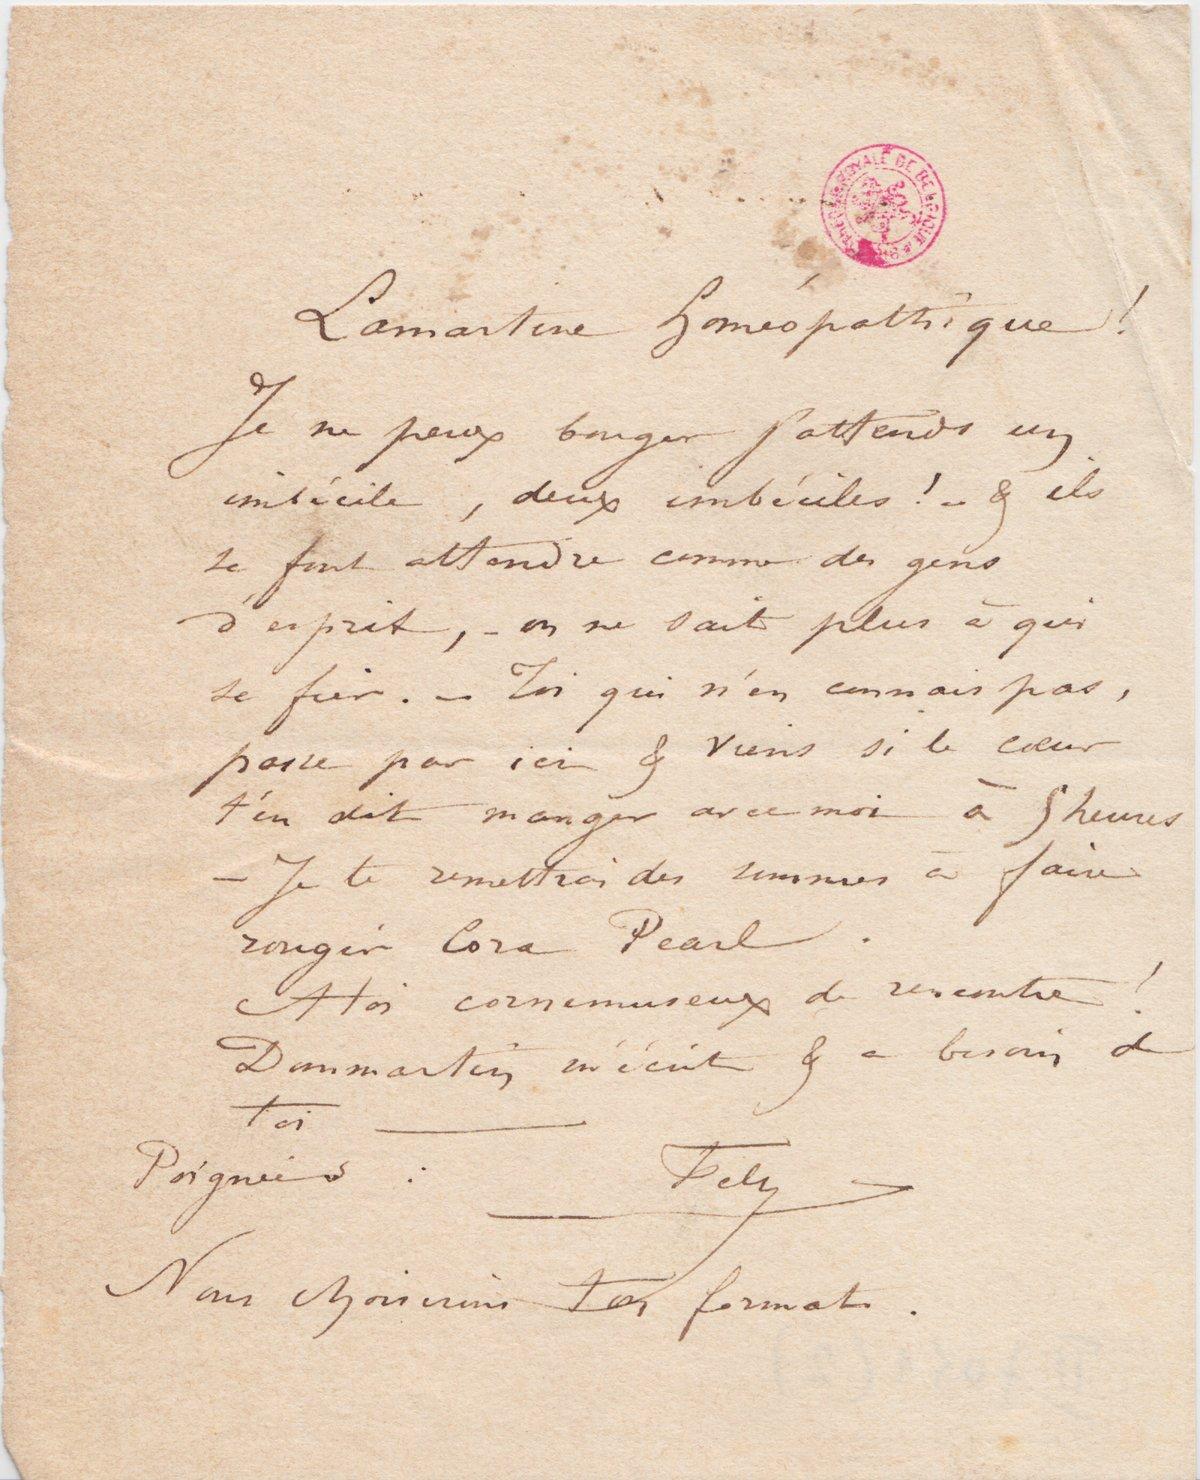 BIBLIOTHÈQUE ROYALE DE BELGIQUE
Lamartine homéopathique !
Je ne peux bouger j'attends un
imbécile, deux imbéciles ! - & ils
se font attendre comme des gens
d'esprit, - on ne sait plus à qui
se fier. - Toi qui n'en connais pas,
passe par ici & viens si le cœur
t'en dit manger avec moi à 5 heures
- Je te remettrai des sommes à faire
rougir Cora Pearl.
A toi cornemuseux de rencontre !
Dommartin m'écrit & a besoin de
toi
Poignées : Fely
Nous choisirons ton format.